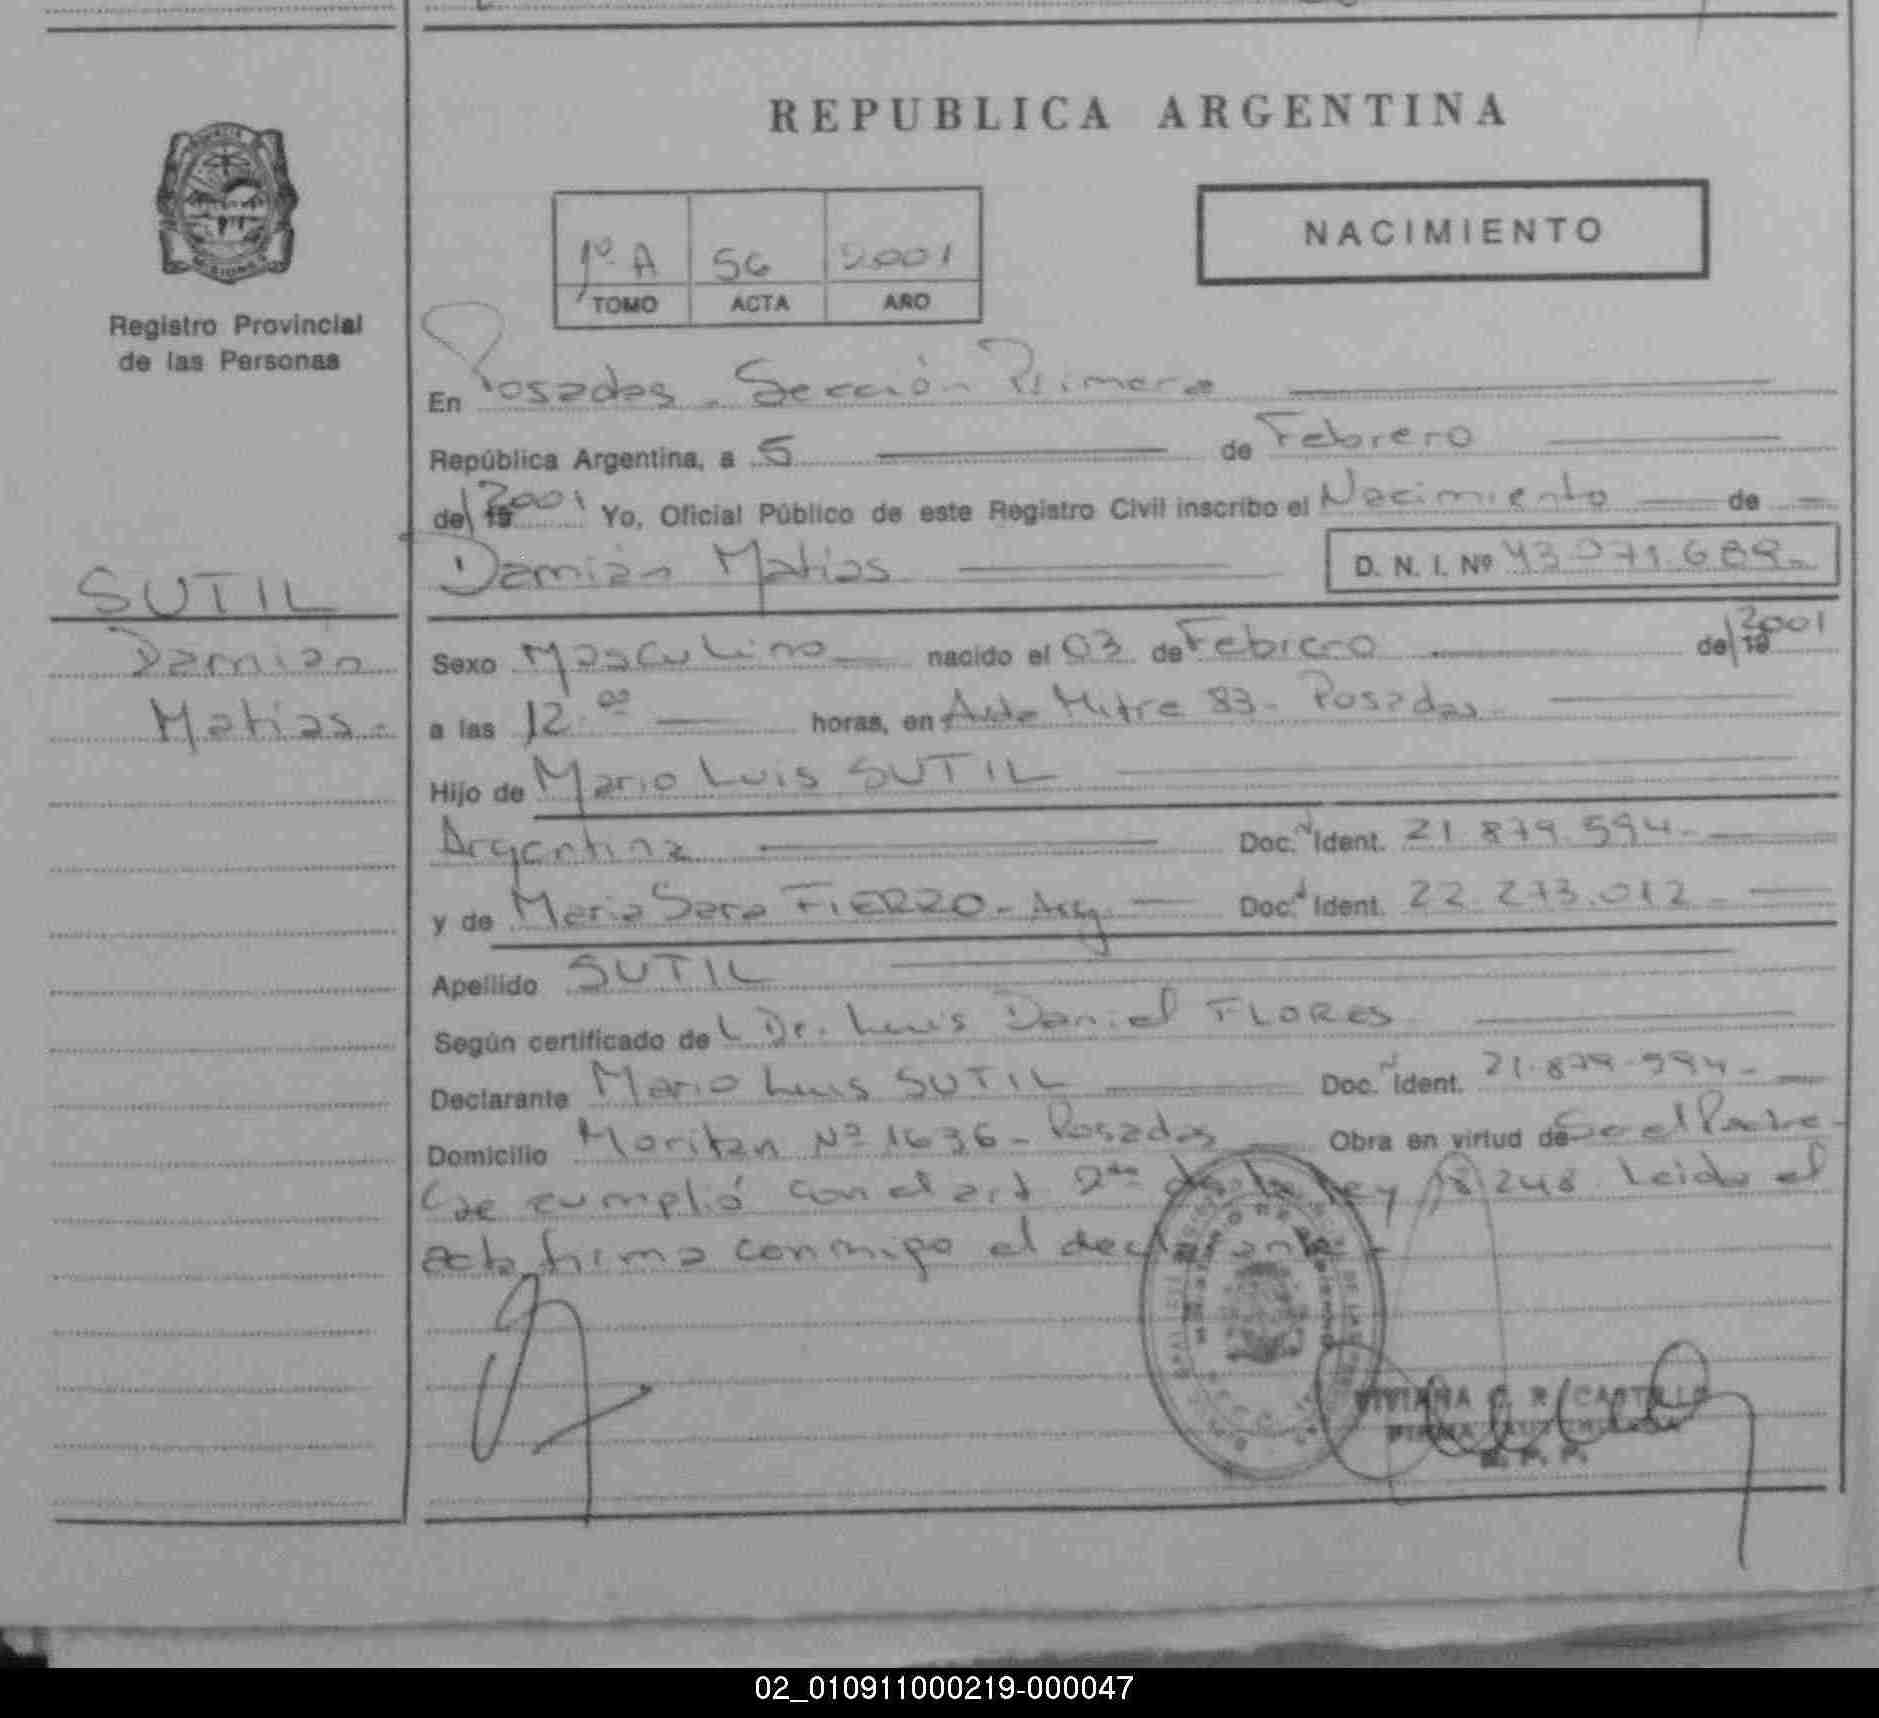 REPUBLICA ARGENTINA
NACIMIENTO
1º A 56 2001
TOMO ACTA AÑO
Registro Provincial
de las Personas
En Posadas - Sección Primera
República Argentina, a 5 de Febrero
de 2001 Yo, Oficial Público de este Registro Civil inscribo el Nacimiento de
Damián Matias D. N. I. Nº 43.071.689-
SUTIL
Damián
Matias-
Sexo Masculino nacido el 03 de Febrero de 2001
a las 12.00 horas, en Avda Mitre 83- Posadas-
Hijo de Mario Luis SUTIL
Argentina Doc. N Ident. 21.879.594-
y de Maria Sara FIERRO - Arg. Doc. Ident. 22.273.012-
Apellido SUTIL
Según certificado del Dr. Luis Daniel FLORES
Declarante Mario Luis SUTIL Doc. N Ident. 21.879.594-
Domicilio Moritan Nº 1636 - Posadas Obra en virtud de Ser el Padre-
Se cumplió con el art 2do de la Ley 18248. Leida el
acta firma conmigo el declarante-
VIVIANA C. R. CASTILLO
R. P. P.
02_010911000219-000047